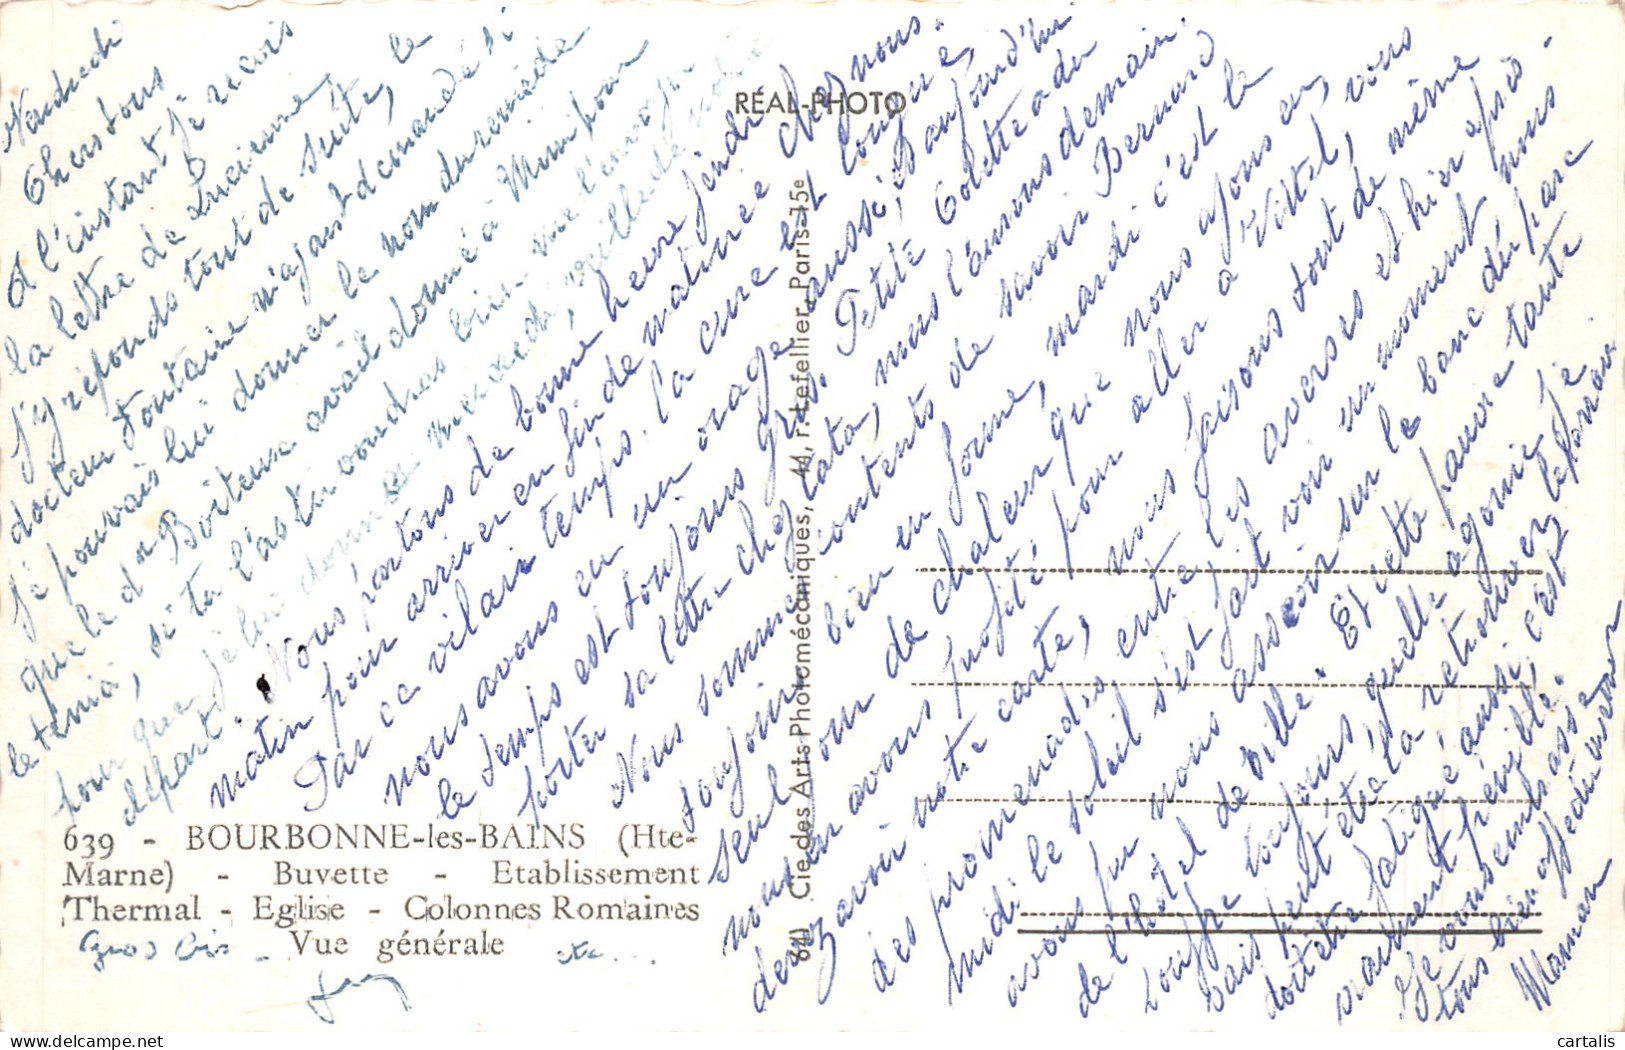 Vendredi
Chers tous
A l'instant je reçois
la lettre de Lucienne,
j'y réponds tout de suite, le
docteur Fontaine m'ayant demandé si
je pouvais lui donner le nom du remède
que le dr Boiteux avait donné à Mimi pour
le ténia, si tu l'as tu voudras bien me l'envoyer
pour que je lui donne mercredi, veille de notre
départ. Nous partons de bonne heure jeudi
matin pour arriver en fin de matinée chez nous.
Par ce vilain temps. la cure est longue,
nous avons eu un orage aussi, et aujourd'hui
le temps est toujours gris. Petite Colette a du
porter sa lettre chez tata, nous l'aurons demain.
Nous sommes contents de savoir Bernard
toujours bien en forme, mardi c'est le
seul jour de chaleur que nous ayons eu,
nous en avons profité pour aller à Vittel, vous
devez avoir notre carte, nous faisons tout de même
des promenades entre les averses et hier après-
midi le soleil s'est fait voir un moment nous
avons pu nous asseoir sur le banc du parc
de l'hôtel de Ville. Et cette pauvre tante
souffre toujours, quelle agonie je
vais peut être la retrouver, le
doit être fatiguée aussi, c'est
vraiment pénible.
Je vous embrasse
tous bien affectueusement
Maman
Gros bis
etc...
RÉAL-PHOTO
Cie des Arts Photomécaniques, 44, r. Letellier, Paris-15e
639 - BOURBONNE-les-BAINS (Hte-
Marne) - Buvette - Etablissement
Thermal - Eglise - Colonnes Romaines
- Vue générale
cartalis